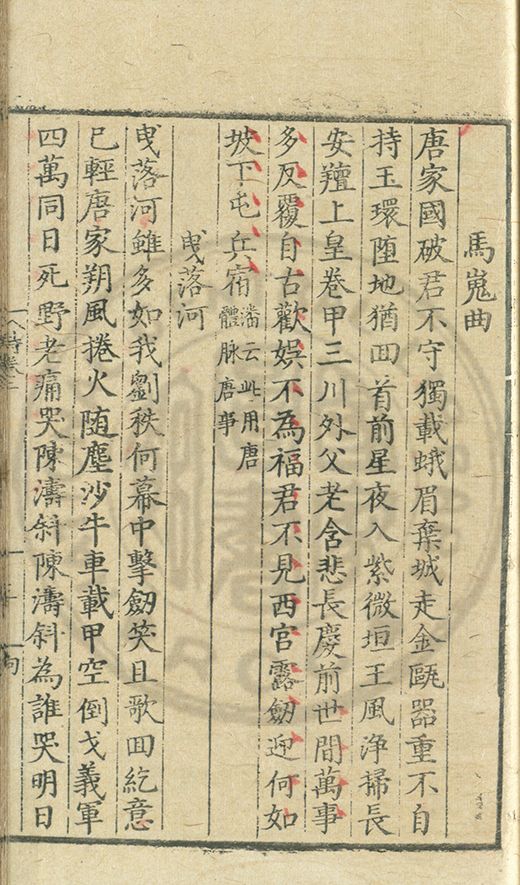 馬嵬曲
唐家國破君不守獨載蛾眉棄城走金甌器重不自
持玉環墮地猶回首前星夜入紫微垣王風淨掃長
安羶上皇卷甲三川外父老含悲長慶前世間萬事
多反覆自古歡娛不為福君不見西宮露劒迎何如
坡下屯兵宿潘云此用唐
體脉唐事
曳落河
曳落河雖多如我劉秩何幕中擊劒笑且歌回紇意
已輕唐家朔風捲火随塵沙牛車載甲空倒戈義軍
四萬同日死野老痛哭陳濤斜陳濤斜為誰哭明日